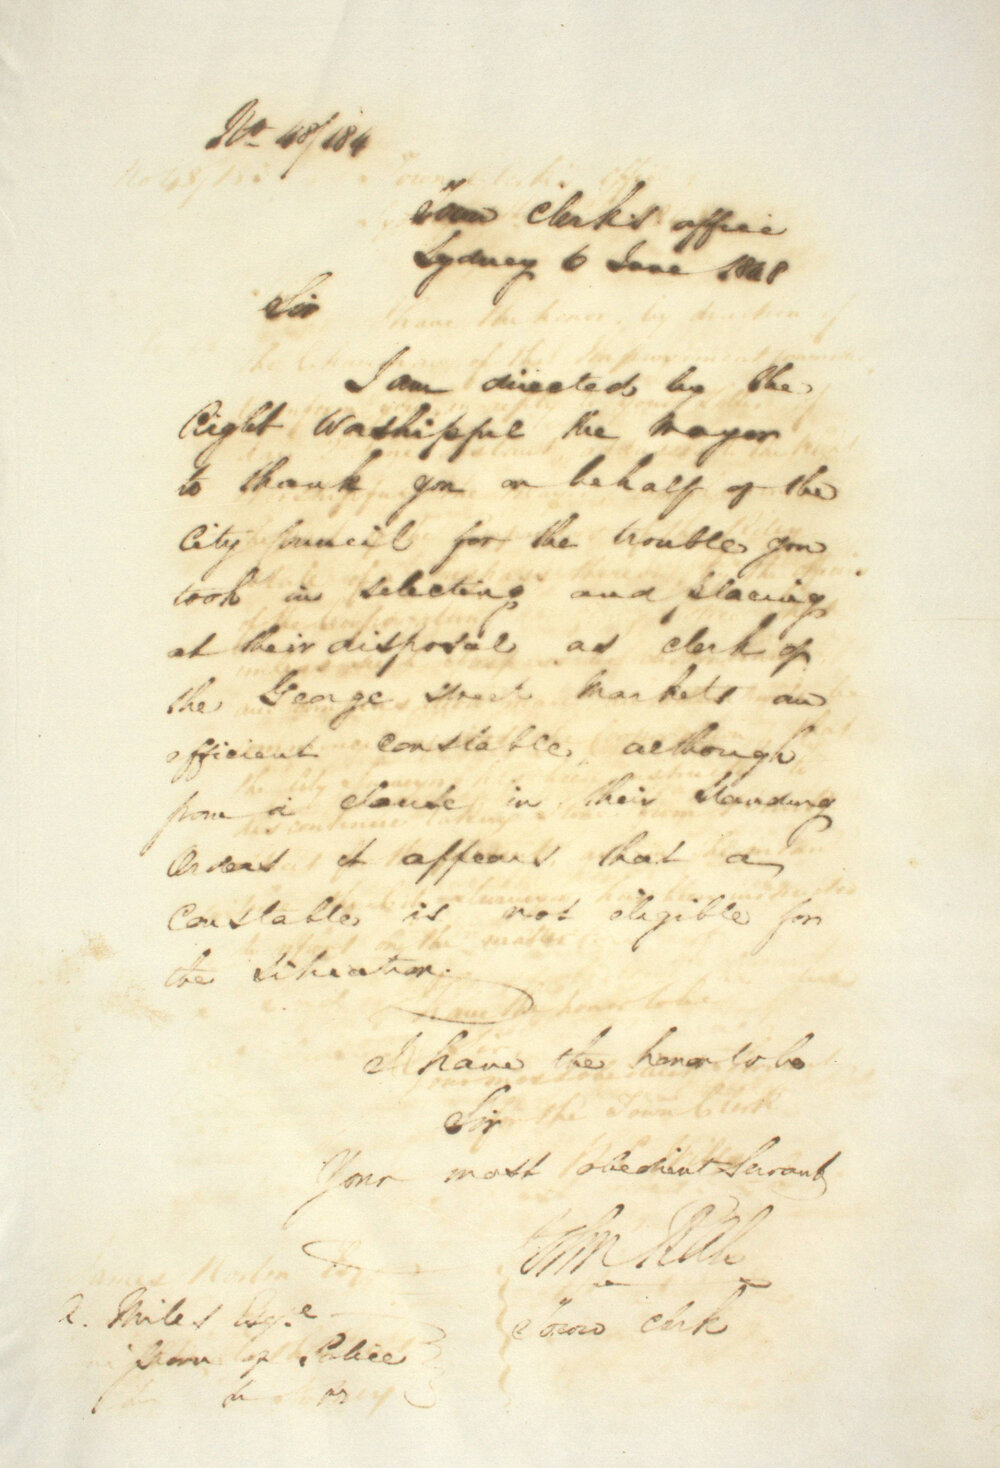 No. 48/184
Town Clerk's office
Sydney 6 June 1848
Sir
I am directed by the
Right Worshipful the Mayor
to thank you on behalf of the
City Council for the trouble you
took in selecting and placing
at their disposal as clerk of
the George Street Markets an
efficient constable, although
from a clause in their Standing
Orders it appears that a
Constable is not eligible for
the situation.
I have the honor to be
Sir
Your most obedient Servant
John
Town Clerk
Miles Esqre
of Police